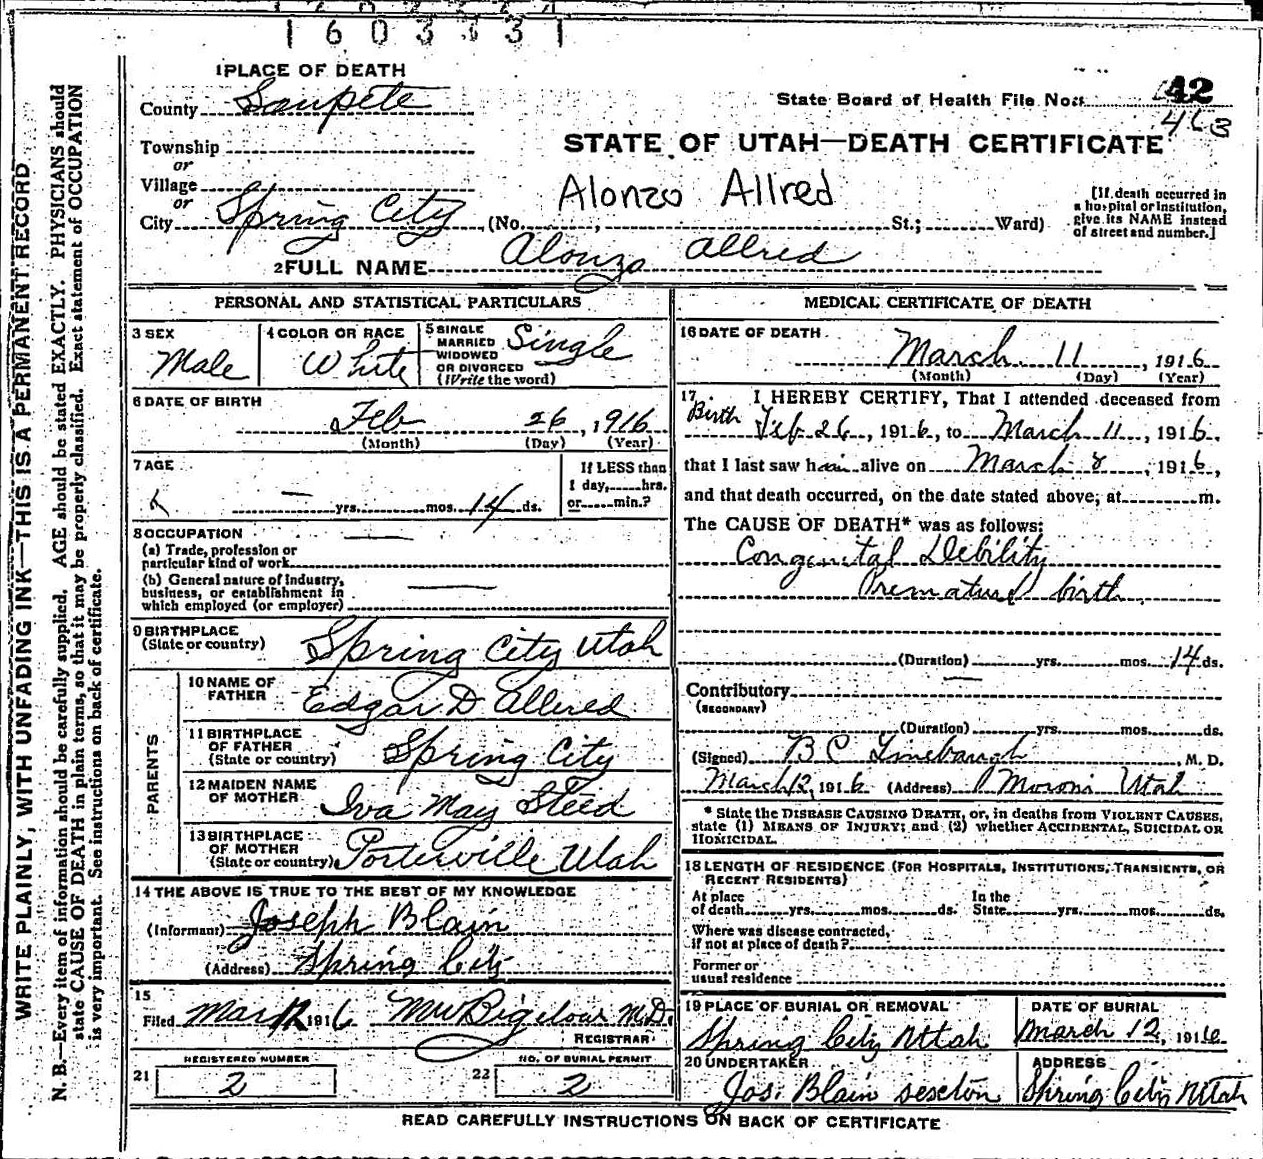 1 PLACE OF DEATH
County Sanpete
State Board of Health File No. 42
463
Township
or
Village
or
City Spring City (No. St.; Ward)
STATE OF UTAH—DEATH CERTIFICATE
Alonzo Allred
[If death occurred in
a hospital or institution,
give its NAME instead
of street and number.]
2 FULL NAME Alonzo Allred
PERSONAL AND STATISTICAL PARTICULARS
3 SEX
Male
4 COLOR OR RACE
White
5 SINGLE
MARRIED
WIDOWED
OR DIVORCED
(Write the word)
Single
6 DATE OF BIRTH
Feb 26, 1916
(Month) (Day) (Year)
7 AGE
— yrs. mos. 14 ds.
If LESS than
1 day, hrs.
or min.?
8 OCCUPATION
(a) Trade, profession or
particular kind of work
(b) General nature of industry,
business, or establishment in
which employed (or employer)
9 BIRTHPLACE
(State or country)
Spring City Utah
PARENTS
10 NAME OF
FATHER
Edgar D Allred
11 BIRTHPLACE
OF FATHER
(State or country)
Spring City
12 MAIDEN NAME
OF MOTHER
Iva May Steed
13 BIRTHPLACE
OF MOTHER
(State or country)
Porterville Utah
14 THE ABOVE IS TRUE TO THE BEST OF MY KNOWLEDGE
(Informant) Joseph Blain
(Address) Spring City
15
Filed Mar 12 1916 MW Bigelow M.D.
REGISTRAR
REGISTERED NUMBER
21 2
NO. OF BURIAL PERMIT
22 2
MEDICAL CERTIFICATE OF DEATH
16 DATE OF DEATH
March 11, 1916
(Month) (Day) (Year)
17 I HEREBY CERTIFY, That I attended deceased from
Birth Feb 26, 1916, to March 11, 1916,
that I last saw him alive on March 8, 1916,
and that death occurred, on the date stated above, at m.
The CAUSE OF DEATH* was as follows:
Congenital Debility
Premature birth
(Duration) yrs. mos. 14 ds.
Contributory
(SECONDARY)
(Duration) yrs. mos. ds.
(Signed) B C Linebaugh, M. D.
March 12, 1916 (Address) Moroni Utah
* State the DISEASE CAUSING DEATH, or, in deaths from VIOLENT CAUSES,
state (1) MEANS OF INJURY; and (2) whether ACCIDENTAL, SUICIDAL OR
HOMICIDAL.
18 LENGTH OF RESIDENCE (FOR HOSPITALS, INSTITUTIONS, TRANSIENTS, OR
RECENT RESIDENTS)
At place
of death yrs. mos. ds.
In the
State yrs. mos. ds.
Where was disease contracted,
if not at place of death?
Former or
usual residence
19 PLACE OF BURIAL OR REMOVAL
Spring City Utah
DATE OF BURIAL
March 12, 1916
20 UNDERTAKER
Jos. Blain sexton
ADDRESS
Spring City Utah
READ CAREFULLY INSTRUCTIONS ON BACK OF CERTIFICATE
WRITE PLAINLY, WITH UNFADING INK—THIS IS A PERMANENT RECORD
N. B.—Every item of information should be carefully supplied. AGE should be stated EXACTLY. PHYSICIANS should
state CAUSE OF DEATH in plain terms, so that it may be properly classified. Exact statement of OCCUPATION
is very important. See instructions on back of certificate.